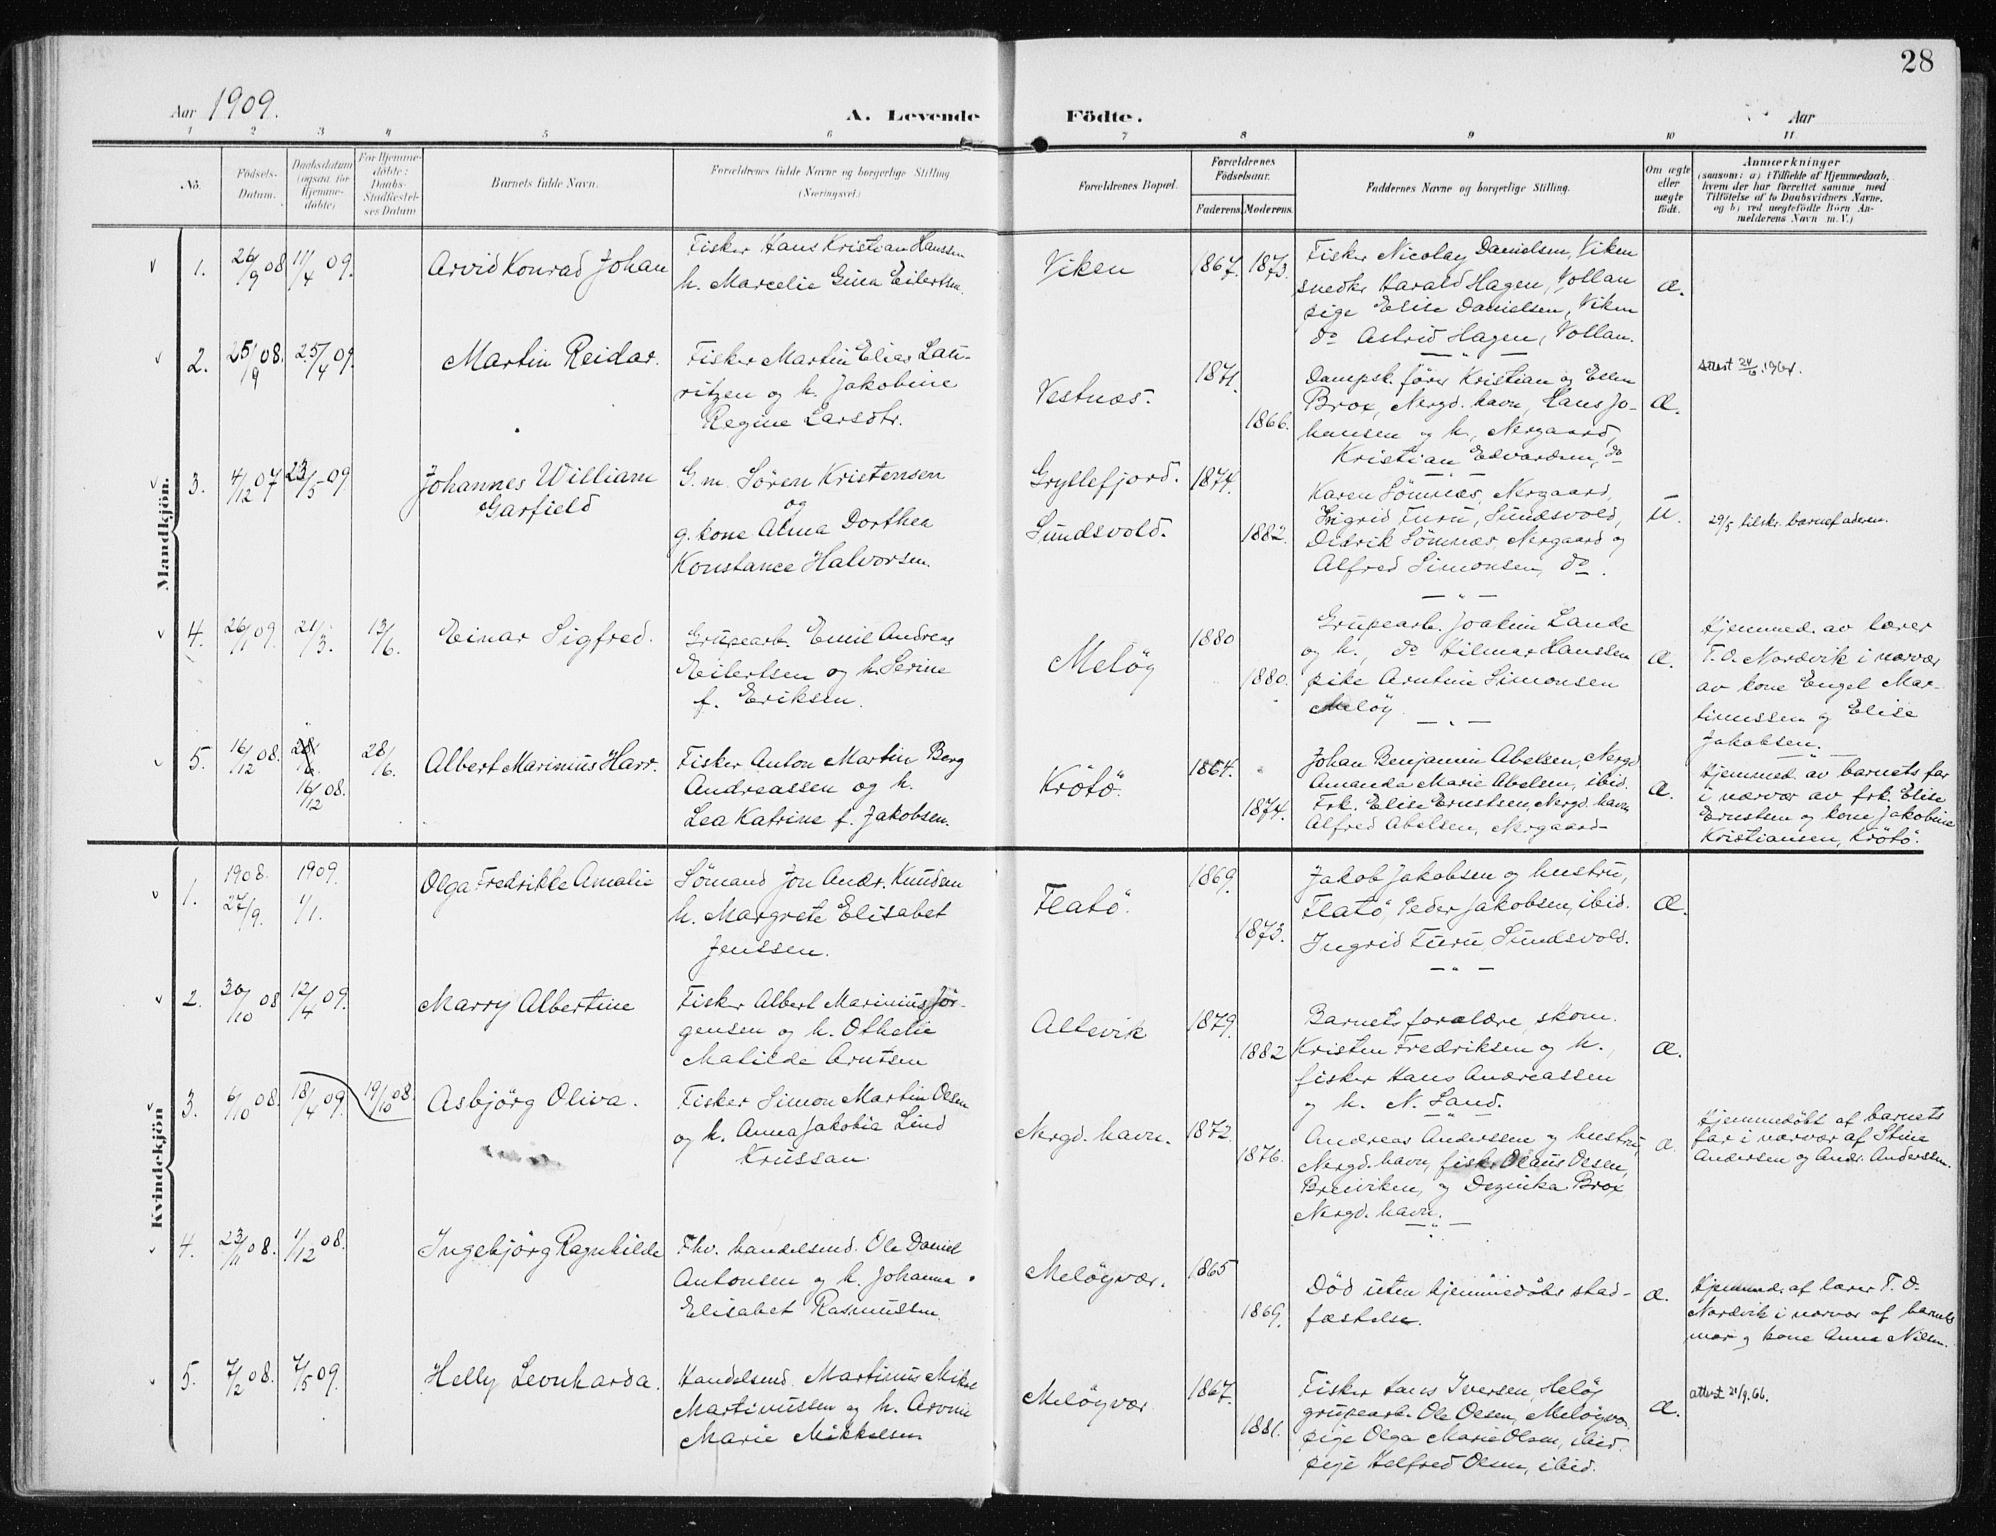 28
Aar 1909.
A. Levende Födte.
Aar
1 2 3 4 5 6 7 8 9 10 11
No.
Födsels-
Datum.
Daabsdatum
(ogsaa for
Hjemme-
döbte)
For Hjemme-
döbte:
Daabs-
Stadfæstel-
ses Datum
Barnets fulde Navn.
Forældrenes fulde Navne og borgerlige Stilling
(Næringsvei.)
Forældrenes Bopæl.
Forældrenes
Födselsaar.
Faderens. Moderens.
Faddernes Navne og borgerlige Stilling.
Om ægte
eller
uægte
födt.
Anmærkninger
(saasom: a) i Tilfælde af Hjemmedaab,
hvem der har forrettet samme, med
Tilföielse af to Daabsvidners Navne,
og b) ved uægtefödte Börn An-
melderens Navn m. V.)
Mandkjön.
1.
26/9 08
11/4 09.
Arvid Konrad Johan
Fisker Hans Kristian Hanssen
h. Marcelie Gina Eilertsen.
Viken
1867. 1873.
Fisker Nicolay Danielsen, Viken
snedkr Harald Hagen, Vollan
pige Elise Danielsen, Viken
do Astrid Hagen, Vollan.
æ.
2.
25/9 08.
25/4 09.
Martin Reidar.
Fisker Martin Elias Lau-
ritzen og h. Jakobine
Regine Larsdtr.
Vestnæs.
1871.
1866.
Dampsk. förer Kristian og Ellen
Brox, Nergd. havn, Hans Jo-
hansen og h., Nergaard,
Kristian Edvardsen, do
æ.
Attest 24/6 1961.
3.
4/12 07
23/5 09.
Johannes William
Garfield
G.m. Sören Kristensen
og
g. kone Alma Dorthea
Konstance Halvorsen.
Gryllefjord.
Sundsvold.
1874.
1882.
Karen Sömnæs, Nergaard,
Ingrid Furu, Sundsvold,
Didrik Sömnæs, Nergaard og
Alfred Simonsen, do.
u.
29/5 tilskr. barnefaderen.
4.
26/1 09.
21/3.
13/6.
Einar Sigfred.
Grubearb. Emil Andreas
Eilertsen og h. Serine
f. Eriksen.
Melöy
1880
1880.
Grubearb. Joakim Lande
og h., do Hilmar Hanssen
pike Arntine Simonsen
Melöy.
æ.
Hjemmed. av lærer
T. O. Nordvik i nærvær
av kone Engel Mar-
tinussen og Elise
Jakobsen.
5.
16/12 08.
28/6.
16/12 08.
28/6.
Albert Marinius Harr.
Fisker Anton Martin Berg
Andreassen og h.
Lea Katrine f. Jakobsen.
Krötö.
1864.
1874.
Johan Benjamin Abelsen, Nergd
Amanda Marie Abelsen, ibid.
Frk. Elise Ernstsen, Nergd. havn
Alfred Abelsen, Nergaard
æ.
Hjemmed. av barnets far
i nærvær av frk. Elise
Ernstsen og kone Jakobine
Kristiansen, Krötö.
Kvindekjön
1.
1908.
27/9.
1909.
1/1.
Olga Fredrikke Amalie
Sömand Jon Andr. Knudsen
h. Margrete Elisabet
Jenssen.
Flatö.
1869.
1873.
Jakob Jakobsen og hustru,
Flatö, Peder Jakobsen, ibid.
Ingrid Furu, Sundsvold.
æ.
2.
30/10 08
12/4 09.
Marry Albertine
Fisker Albert Marinius Jör-
gensen og h. Othelie
Matilde Arntsen
Altevik
1879.
1882
Barnets forældre, skom.
Kristen Fredriksen og h.,
fisker Hans Andreassen
og h. N. Sand.
æ.
3.
6/10 08.
18/4 09.
19/10 08.
Asbjörg Oliva.
Fisker Simon Martin Olsen
og h. Anna Jakobia Lind
Krussan.
Nergd. havn.
1872.
1876.
Andreas Anderssen og hustru,
Nergd. havn, fisker Olaus Olsen,
Breiviken, og Dezinka Brox
Nergd. havn.
æ.
Hjemmedöbt af barnets
far i nærvær af Stine
Andersen og Andr. Anderssen.
4.
23/11 08.
1/12 08.
Ingebjörg Ragnhilde
Fhv. handelsmd. Ole Daniel
Antonsen og h. Johanna
Elisabet Rasmussen.
Melöyvær.
1865
1869.
Död uten hjemmedöbs stad-
fæstelse.
æ.
Hjemmed. af lærer T. O.
Nordvik i nærvær af barnets
mor og kone Anna Nilsen.
5.
7/2 08.
7/5 09.
Helly Leonharda.
Handelsmd. Martinus Mikal
Martinussen og h. Arovnie
Marie Mikkelsen
Melöyvær
1867.
1881.
Fisker Hans Iversen, Helöy
grubearb. Ole Olsen, Melöyvæ.
pige Olga Marie Olsen, ibid.
pige Helfred Olsen, ibid.
æ.
attest 21/9. 66.